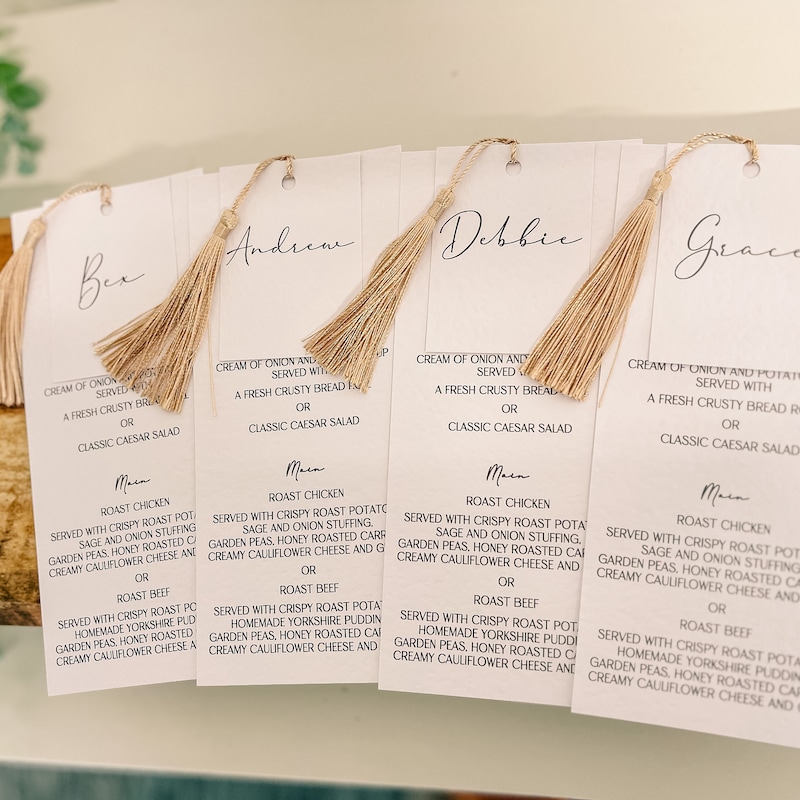 Bex
CREAM OF ONION AND
SERVED
A FRESH CRUSTY BREAD
OR
CLASSIC CAESAR SALAD
Main
ROAST CHICKEN
SERVED WITH CRISPY ROAST
SAGE AND ONION STUFFING,
GARDEN PEAS, HONEY ROASTED
CREAMY CAULIFLOWER CHEESE AND
OR
ROAST BEEF
SERVED WITH CRISPY ROAST
HOMEMADE YORKSHIRE
GARDEN PEAS, HONEY ROASTED
CREAMY CAULIFLOWER CHEESE
Andrew
CREAM OF ONION AND
SERVED WITH
A FRESH CRUSTY BREAD
OR
CLASSIC CAESAR SALAD
Main
ROAST CHICKEN
SERVED WITH CRISPY ROAST
SAGE AND ONION STUFFING,
GARDEN PEAS, HONEY ROASTED
CREAMY CAULIFLOWER CHEESE AND
OR
ROAST BEEF
SERVED WITH CRISPY ROAST
HOMEMADE YORKSHIRE
GARDEN PEAS, HONEY ROASTED
CREAMY CAULIFLOWER CHEESE AND
Debbie
CREAM OF ONION AND
SERVED
A FRESH CRUSTY BREAD
OR
CLASSIC CAESAR SALAD
Main
ROAST CHICKEN
SERVED WITH CRISPY ROAST
SAGE AND ONION STUFFING,
GARDEN PEAS, HONEY ROASTED
CREAMY CAULIFLOWER CHEESE AND
OR
ROAST BEEF
SERVED WITH CRISPY ROAST
HOMEMADE YORKSHIRE
GARDEN PEAS, HONEY ROASTED
CREAMY CAULIFLOWER CHEESE AND
Grace
CREAM OF ONION AND POTATO
SERVED WITH
A FRESH CRUSTY BREAD
OR
CLASSIC CAESAR SALAD
Main
ROAST CHICKEN
SERVED WITH CRISPY ROAST
SAGE AND ONION STUFFING,
GARDEN PEAS, HONEY ROASTED
CREAMY CAULIFLOWER CHEESE AND
OR
ROAST BEEF
SERVED WITH CRISPY ROAST
HOMEMADE YORKSHIRE
GARDEN PEAS, HONEY ROASTED
CREAMY CAULIFLOWER CHEESE AND